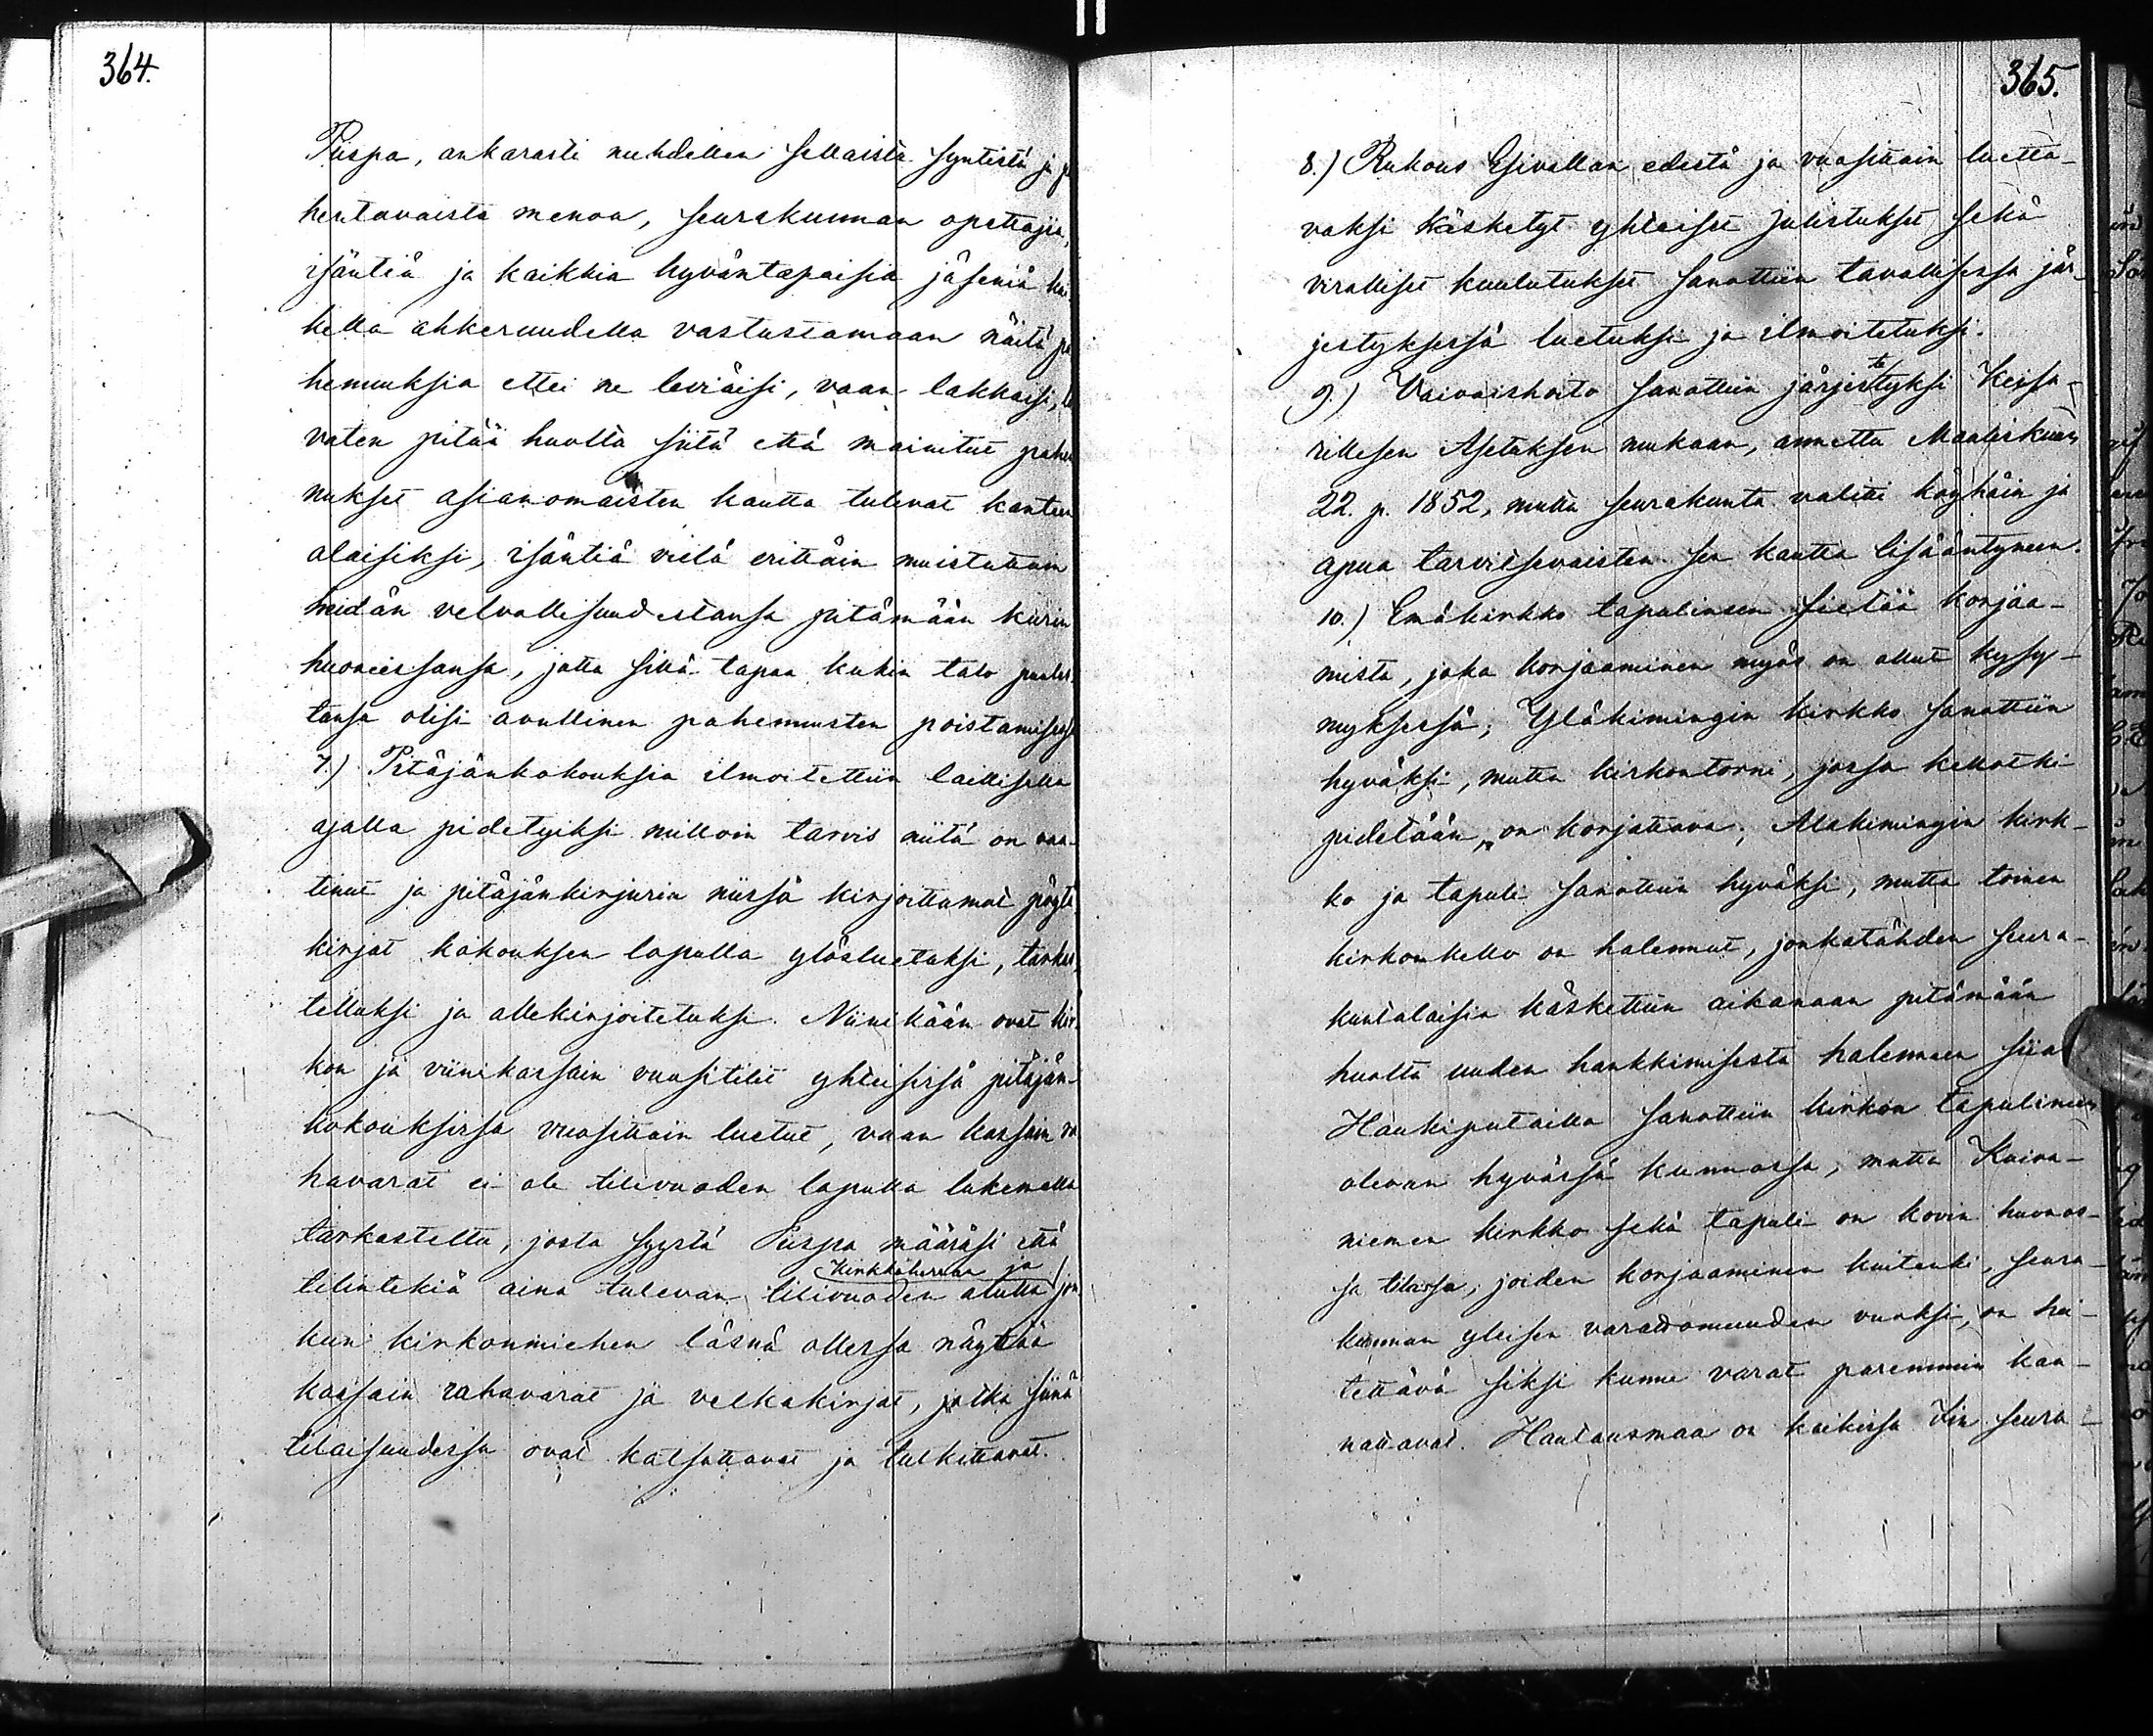 364.
Piispa, ankarasti nuhdellen sellaista syntistä ja
hentavaista menoa, seurakunnan opettajia,
isäntiä ja kaikkia hyväntapaisia jäseniä
kella ahkeruudella vastustamaan näitä
hemuuksia ettei ne leviäisi, vaan lakkaisi,
vaten pitää huolta siitä että mainitut
nukset asianomaisten kautta tulevat kanteen
alaisiksi, isäntiä vielä erittäin muistuttain
heidän velvollisuudestansa pitämään kurin
huoneissansa, jotta sillä tapaa kukin talo puoles-
tansa olisi avullinen pahemuusten poistamisessa
7.) Pitäjänkokouksia ilmoitettiin laillisella
ajalla pidetyiksi milloin tarvis niitä on vaa-
tinut ja pitäjänkirjurin niissä kirjoittamat pöytä
kirjat kokouksen lopulla ylösluetuksi, tarkas-
telluksi ja allekirjoitetuksi. Niinikään ovat kir-
kon ja viinikassain vuositilit yhteisissä pitäjän-
kokouksissa vuosittain luetut, vaan kassain ra
havarat ei ole tilivuoden lopulla lukemalla
tarkasteltu, josta syystä Piispa määräsi että
Kirkkoherran ja
tilintekiä aina tulevan tilivuoden alulla jon
kun kirkonmiehen läsnä ollessa näyttää
kassain rahavarat ja velkakirjat, jotka siinä
tilaisuudessa ovat katsottavat ja tutkittavat.
365.
8.) Rukous Esivallan edestä ja vuosittain luetta-
vaksi käsketyt yhteiset julistukset sekä
viralliset kuulutukset sanottiin tavallisessa jär-
jestyksessä luetuksi ja ilmoitetuksi.
te
9.) Vaivaishoito sanottiin järjestyksi Keisa-
rillisen Asetuksen mukaan, annettu Maaliskuun
22. p. 1852, mutta seurakunta valitti köyhäin ja
apua tarvitsevaisten sen kautta lisääntyneen.
10.) Emäkirkko tapulinsen sietää korjaa-
mista, joka korjaaminen myös on ollut kysy-
myksessä; Yläkimingin kirkko sanottiin
hyväksi, mutta kirkontorni, jossa kellotki
pidetään, on korjattava; Alakimingin kirk-
ko ja tapuli sanottiin hyväksi, mutta toinen
kirkonkello on halennut, jonkatähden seura-
kuntalaisia käskettiin aikanaan pitämään
huolta uuden hankkimisesta halenneen siaan
Haukiputailla sanottiin kirkon tapulineen
olevan hyvässä kunnossa, mutta Kuiva-
niemen kirkko sekä tapuli on kovin huonos-
sa tilassa, joiden korjaaminen kuitenki, seura-
kunnan yleisen varattomuuden vuoksi, on hei-
tettävä siksi kunne varat paremmin kan-
nattavat. Hautausmaa on kaikissa Iin seura-